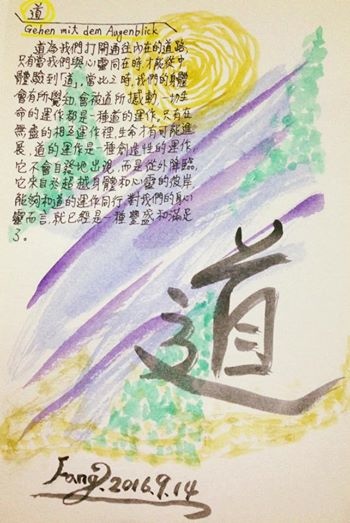 道
Gehen mit dem Augenblick
道為我們打開通往內在的道路,
只有當我們與心靈同在時,才能從中
體驗到「道」,當此之時,我們的身體
會有所覺知,會被道所撼動,一切生
命的運作都是一種道的運作,只有在
無盡的相互運作裡,生命才有可能進
展。道的運作是一種創造性的作用,
它不會自發地出現,而是從外降臨,
它來自於超越身體和心靈的彼岸,
能夠和道的運作同行,對我們的身心
靈而言,就已經是一種豐盛和滿足
了。
道
Fang. 2016.9.14